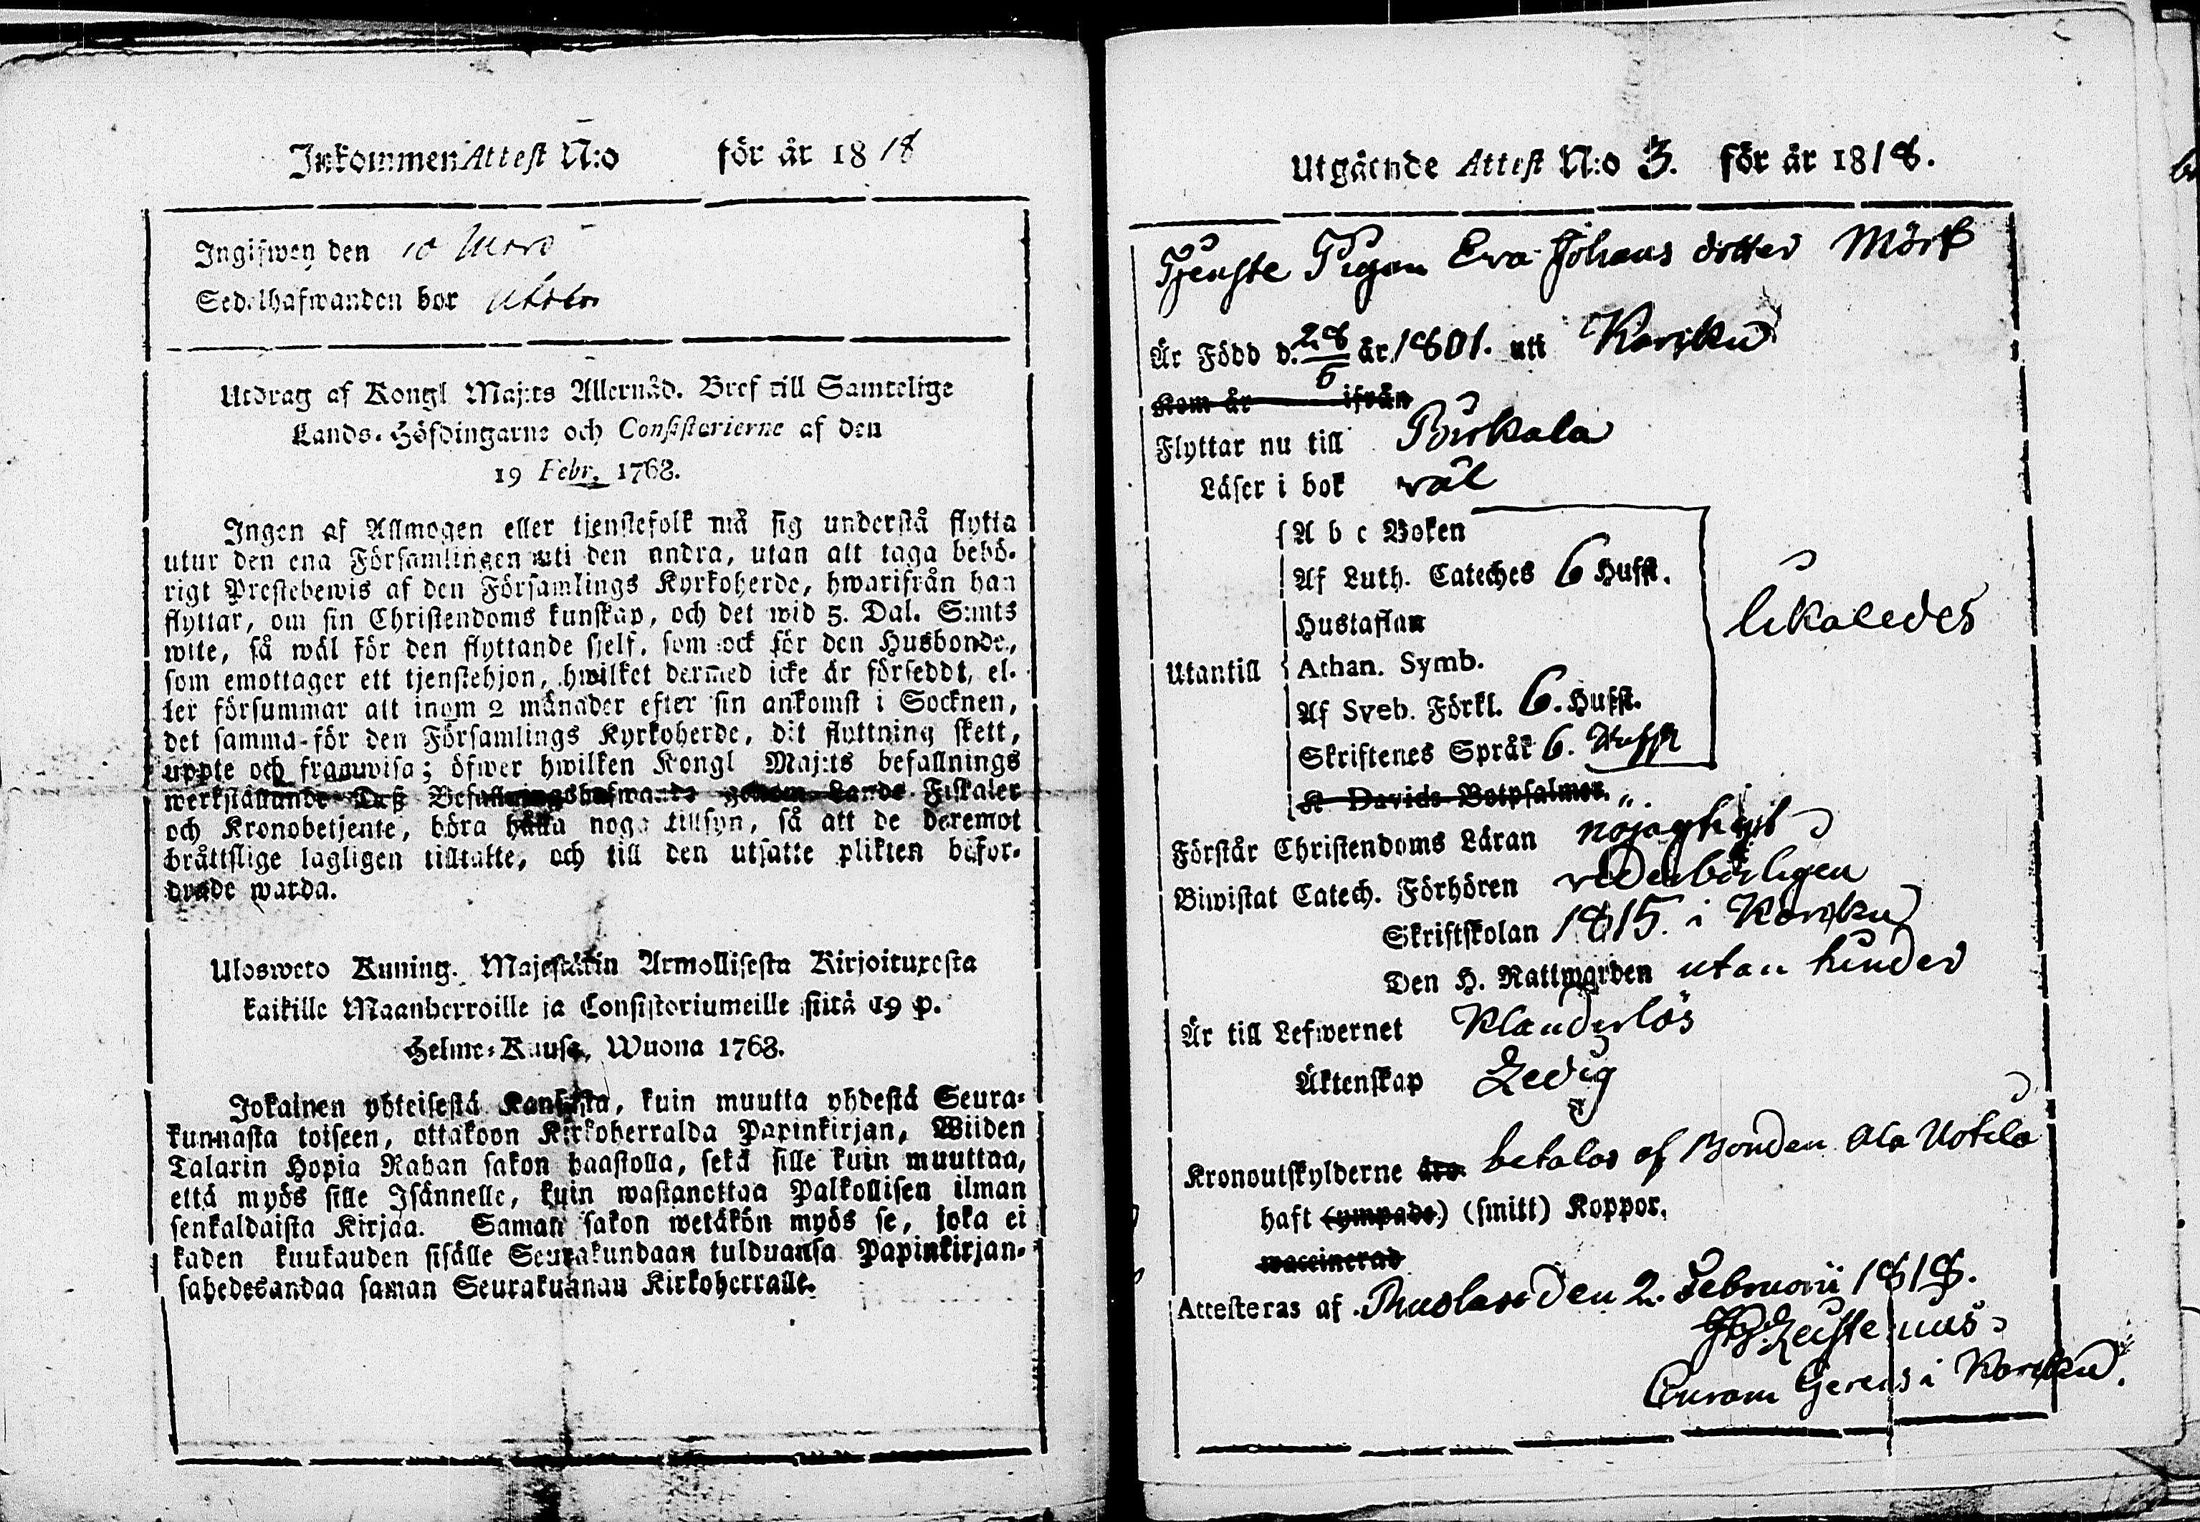 Inkommen Attest N:o för år 1818
Ingifwen den 10 Mars
Sedelhafwanden bor
Utdrag af Kongl Maj:ts Allernåd. Bref till Samtelige
Lands-Höfdingarne och Consistorierne af den
19 Febr. 1768.
Ingen af Allmogen eller tjenstefolk må sig understå flytta
utur den ena Församlingen uti den andra, utan att taga behö-
rigt Prestebewis af den Församlings Kyrkoherde, hwarifrån han
flyttar, om sin Christendoms kunskap, och det wid 5. Dal. S:mts
wite, så wäl för den flyttande sjelf, som ock för den Husbonde,
som emottager ett tjenstehjon, hwilket dermed icke är förseddt, el-
ler försummar att inom 2 månader efter sin ankomst i Socknen,
det samma för den Församlings Kyrkoherde, dit flyttning skett,
uppte och framwisa; öfwer hwilken Kongl Maj:ts befallnings
werkställande Dess Befallningshafwande genom Lands-Fiskaler
och Kronobetjente, böra hålla noga tillsyn, så att de deremot
bråttslige lagligen tilltalte, och till den utsatte plikten befor-
drade warda.
Ulosweto Kuning. Majestätin Armollisesta Kirjoituxesta
kaikille Maanherroille ja Consistoriumeille siitä 19 p.
Helme-Kuusa, Wuona 1768.
Jokainen yhteisestä Kansasta, kuin muutta yhdestä Seura-
kunnasta toiseen, ottakoon Kirkoherralda Papinkirjan, Wiiden
Talarin Hopia Rahan sakon haastolla, sekä sille kuin muuttaa,
että myös sille Isännelle, kuin wastanottaa Palkollisen ilman
senkaldaista Kirjaa. Saman sakon wetäkön myös se, joka ei
kaden kuukauden sisälle Seurakundaan tulduansa Papinkirjan-
sahedesandaa saman Seurakunnan Kirkoherralle.
Utgående Attest N:o 3. för år 1818.
Tjenste Pigan Eva Johans dotter Mörk
Är Född d. 28/6 år 1801. uti Karjku
Kom år ifrån
Flyttar nu till Birkala
Läser i bok väl
A b c Boken
Af Luth. Cateches 6 Hufst.
Hustaflan
likaledes
Utantill Athan. Symb.
Af Sveb. Förkl. 6. Hufst.
Skriftenes Språk 6. Hufst
K Davids Botpsalmer.
Förstår Christendoms Läran nöjagtigt
Biwistat Catech. Förhören vederbörligen
Skriftskolan 1815. i Karjku
Den H. Nattwarden utan hinder
Är till Lefwernet Klanderlös
Äktenskap Ledig
Kronoutskylderne äro betalas af Bonden Ala Uotila
haft (ympade) (smitt) Koppor.
waccinerad
Attesteras af den 2. Februarii 1818.
Curam Gerens i Karjku.